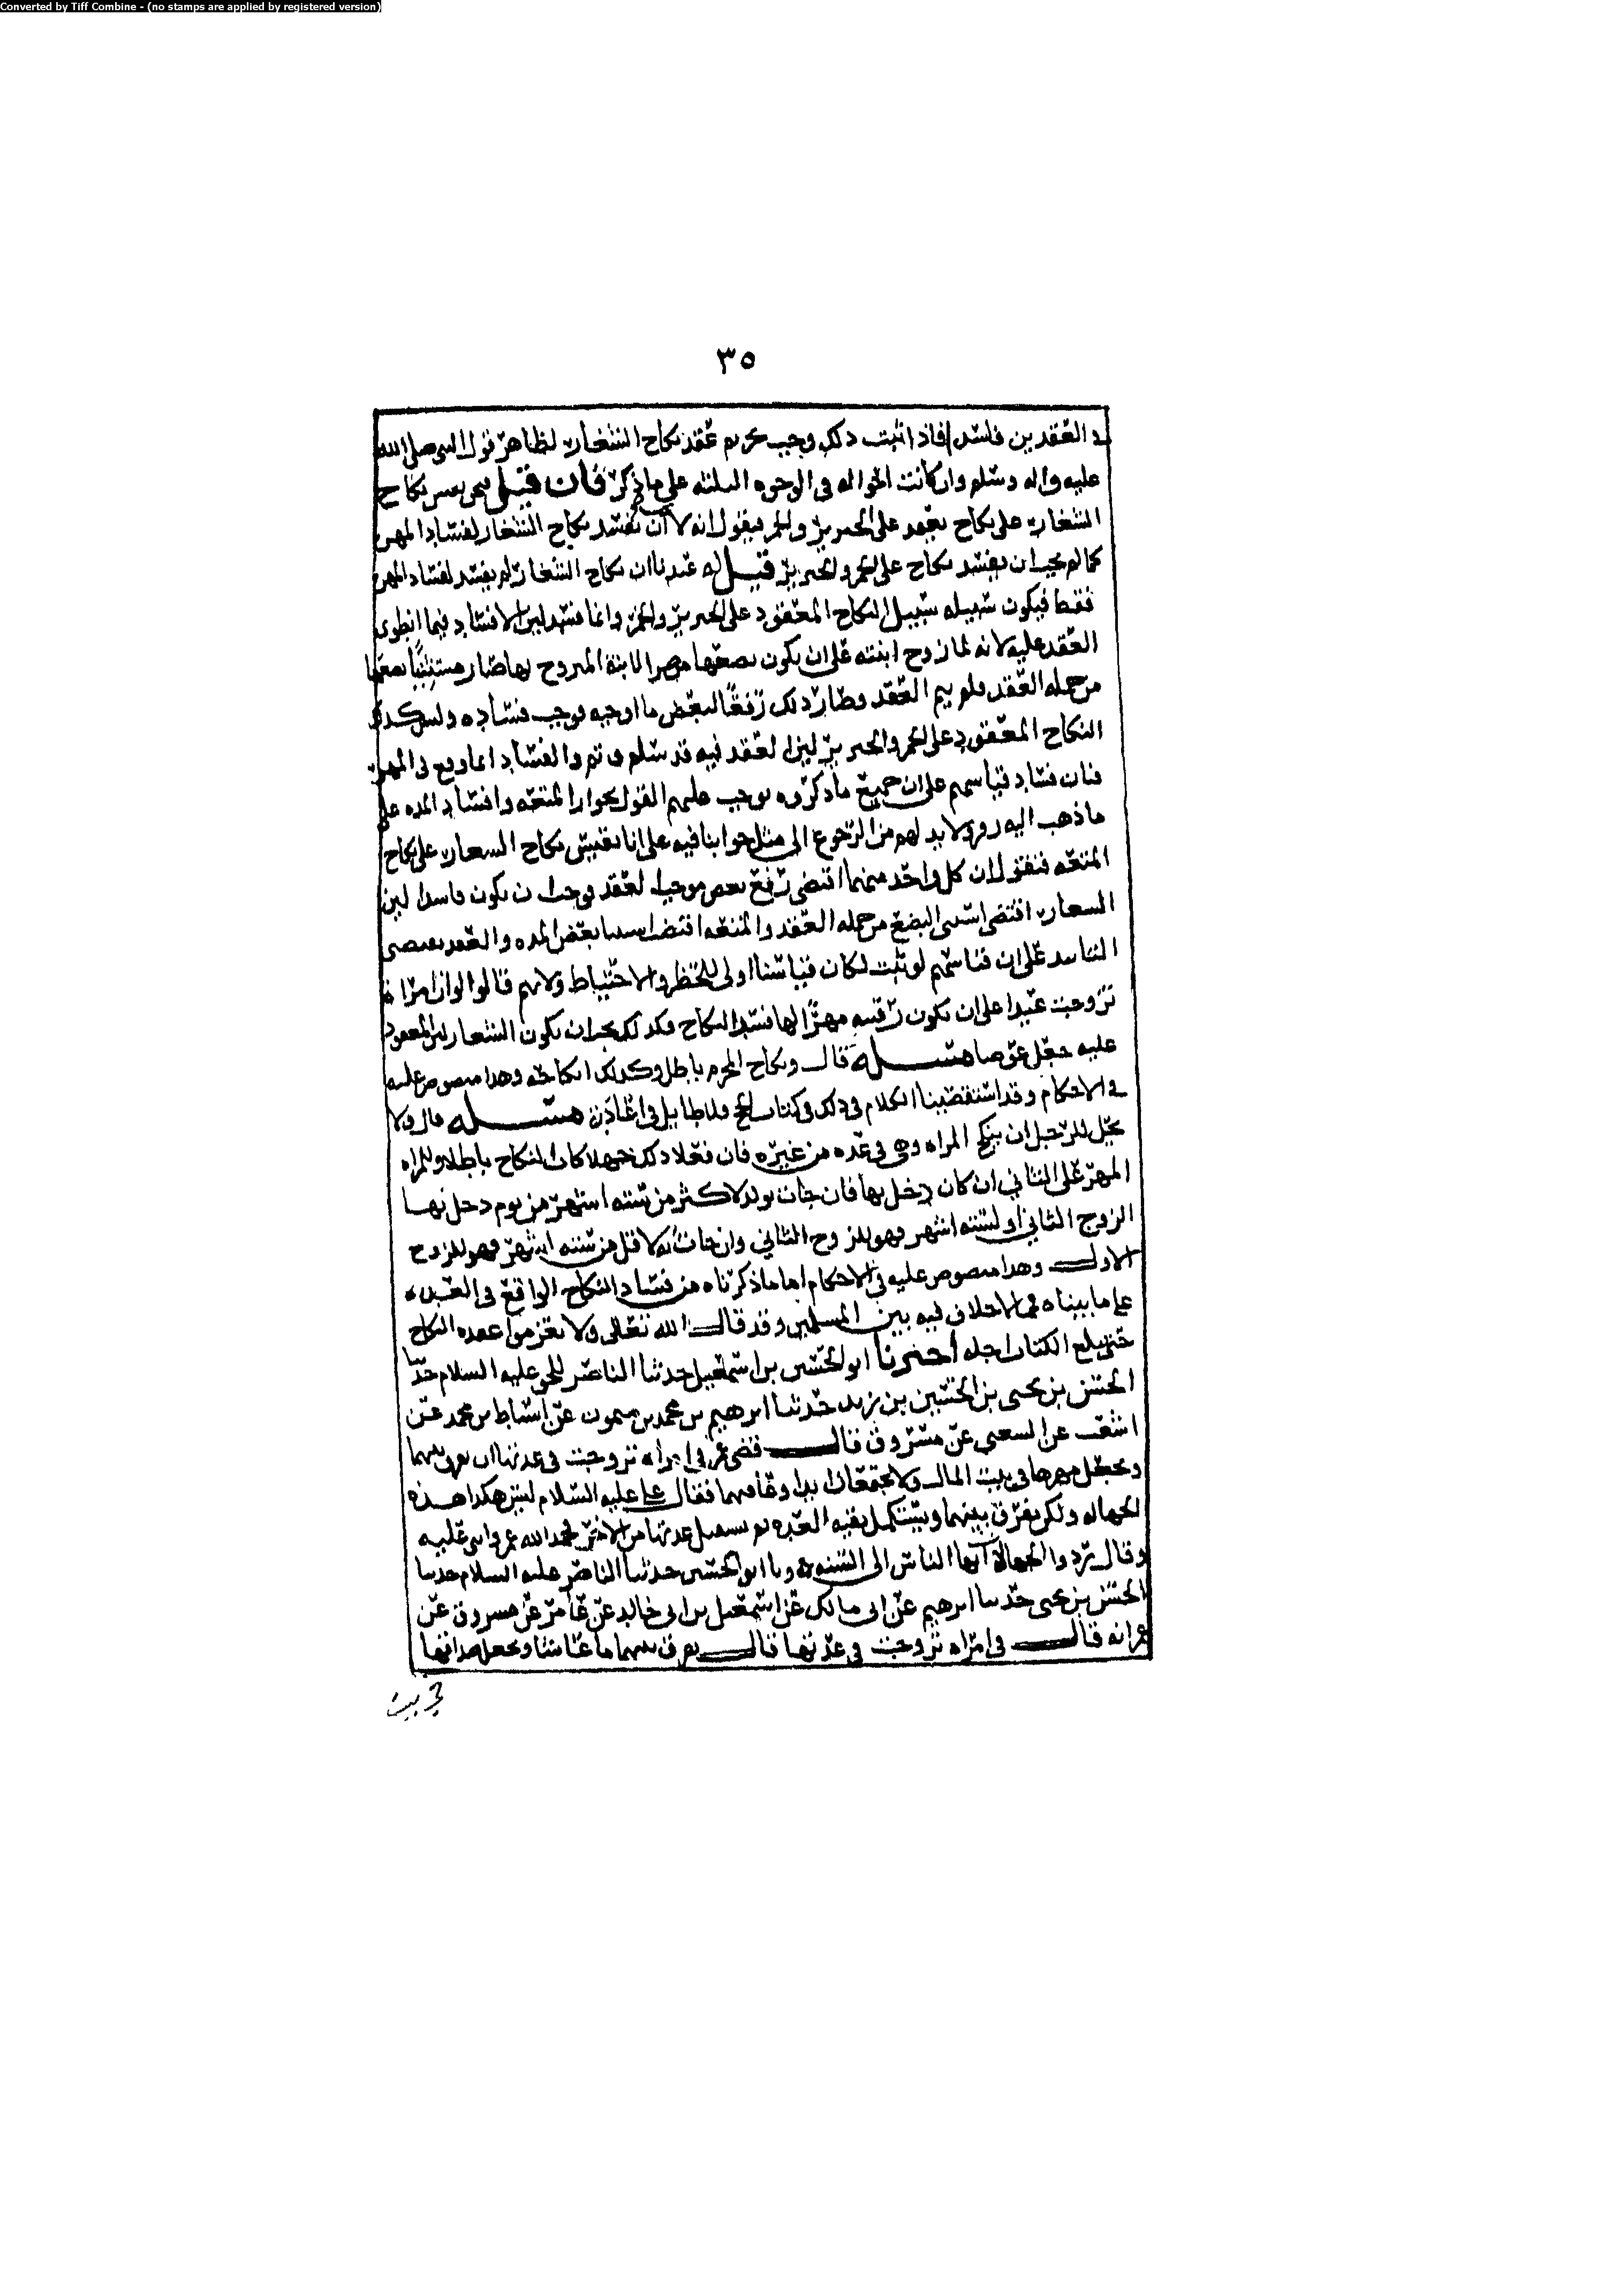 Converted by Tiff Combine - (no stamps are applied by registered version)
٣٥
العقدين فاسد فاذا ثبت ذلك وجب تحريم عقد نكاح الشغار لظاهر قول النبي صلى الله
عليه واله وسلم وان كانت الحواله في الوجوه الثلثه على ما ذكر فان قيل نحن نقيس نكاح
الشغار على نكاح يعقد على الخنزير والخمر فيقول انه لا يجب ان يفسد نكاح الشغار لفساد المهر
كما لم يجب ان يفسد نكاح على الخمر والخنزير قيل له عندنا ان نكاح الشغار لم يفسد لفساد المهر
فقط فيكون سبيله سبيل النكاح المعقود على الخنزير والخمر وانما فسد لان الافساد فيما انطوى
العقد عليه لانه لما زوج ابنته على ان يكون بضعها مهرا لابنة المزوج بها صار مستثنيا بضعها
من جمله العقد فلم يتم العقد وصار ذلك رفعا لبعض ما اوجبه فوجب فساده وليس كذلك
النكاح المعقود على الخمر والخنزير لان العقد فيه قد سلم وتم والفساد انما وقع في المهر
فبان فساد قياسهم على ان جميع ما ذكروه يوجب عليهم القول بجواز المتعه وافساد المده على
ما ذهب اليه زفر ولا بد لهم من الرجوع الى مثل جوابنا فيه على انا نقيس نكاح الشغار على نكاح
المتعه فنقول ان كل واحد منهما اقتضى رفع بعض موجب العقد فوجب ان يكون فاسدا لان
الشغار اقتضى استثنى البضع من جمله العقد والمتعه اقتضت استثنا بعض المده والعقد يقتضي
التابيد على ان قياسهم لو ثبت لكان قياسنا اولى للحظر والاحتياط ولانهم قالوا لو ان امراة
تزوجت عبدا على ان تكون رقبته مهرا لها فسد النكاح فكذلك يجب ان يكون الشغار لان المعقود
عليه جعل عوضا مسئله قال ونكاح المحرم باطل وكذلك انكاحه وهذا منصوص عليه
في الاحكام وقد استقصينا الكلام في ذلك في كتاب الحج فلا طايل في اعادته مسئله قال ولا
يحل للرجل ان ينكح المراه وهي في عده من غيره فان فعلا ذلك جهلا كان النكاح باطلا وللمراه
المهر على الثاني ان كان دخل بها فان جات بولد لاكثر من سته اشهر من يوم دخل بها
الزوج الثاني او لسته اشهر فهو للزوج الثاني وان جات به لاقل من سته اشهر فهو للزوج
الاول وهذا منصوص عليه في الاحكام اما ما ذكرناه من فساد النكاح الواقع في العده
على ما بيناه فمما لا خلاف فيه بين المسلمين وقد قال الله تعالى ولا تعزموا عقده النكاح
حتى يبلغ الكتاب اجله اخبرنا ابو الحسين بن اسمعيل حدثنا الناصر للحق عليه السلام حدثنا
الحسن بن يحيى بن الحسين بن زيد حدثنا ابرهيم بن محمد بن ميمون عن اسباط بن محمد عن
اشعث عن الشعبي عن مسروق قال قضى عمر في امراه تزوجت في عدتها ان يفرق بينهما
ويجعل مهرها في بيت المال ولا يجتمعان ابدا وعاقبهما فقال علي عليه السلام ليس هكذا هذه
الجهاله ولكن يفرق بينهما وتستكمل بقيه العده ثم تستقبل عدتها من الاخر فحمد الله عمر واثنى عليه
وقال ردوا الجهالة ايها الناس الى السنه وبا ابو الحسين حدثنا الناصر عليه السلام حدثنا
الحسن بن يحيى حدثنا ابرهيم عن ابي مالك عن اسمعيل بن ابي خالد عن عامر عن مسروق عن
عمر انه قال في امراه تزوجت في عدتها قال يفرق بينهما ما عاشا ويجعل صداقها
في بيت